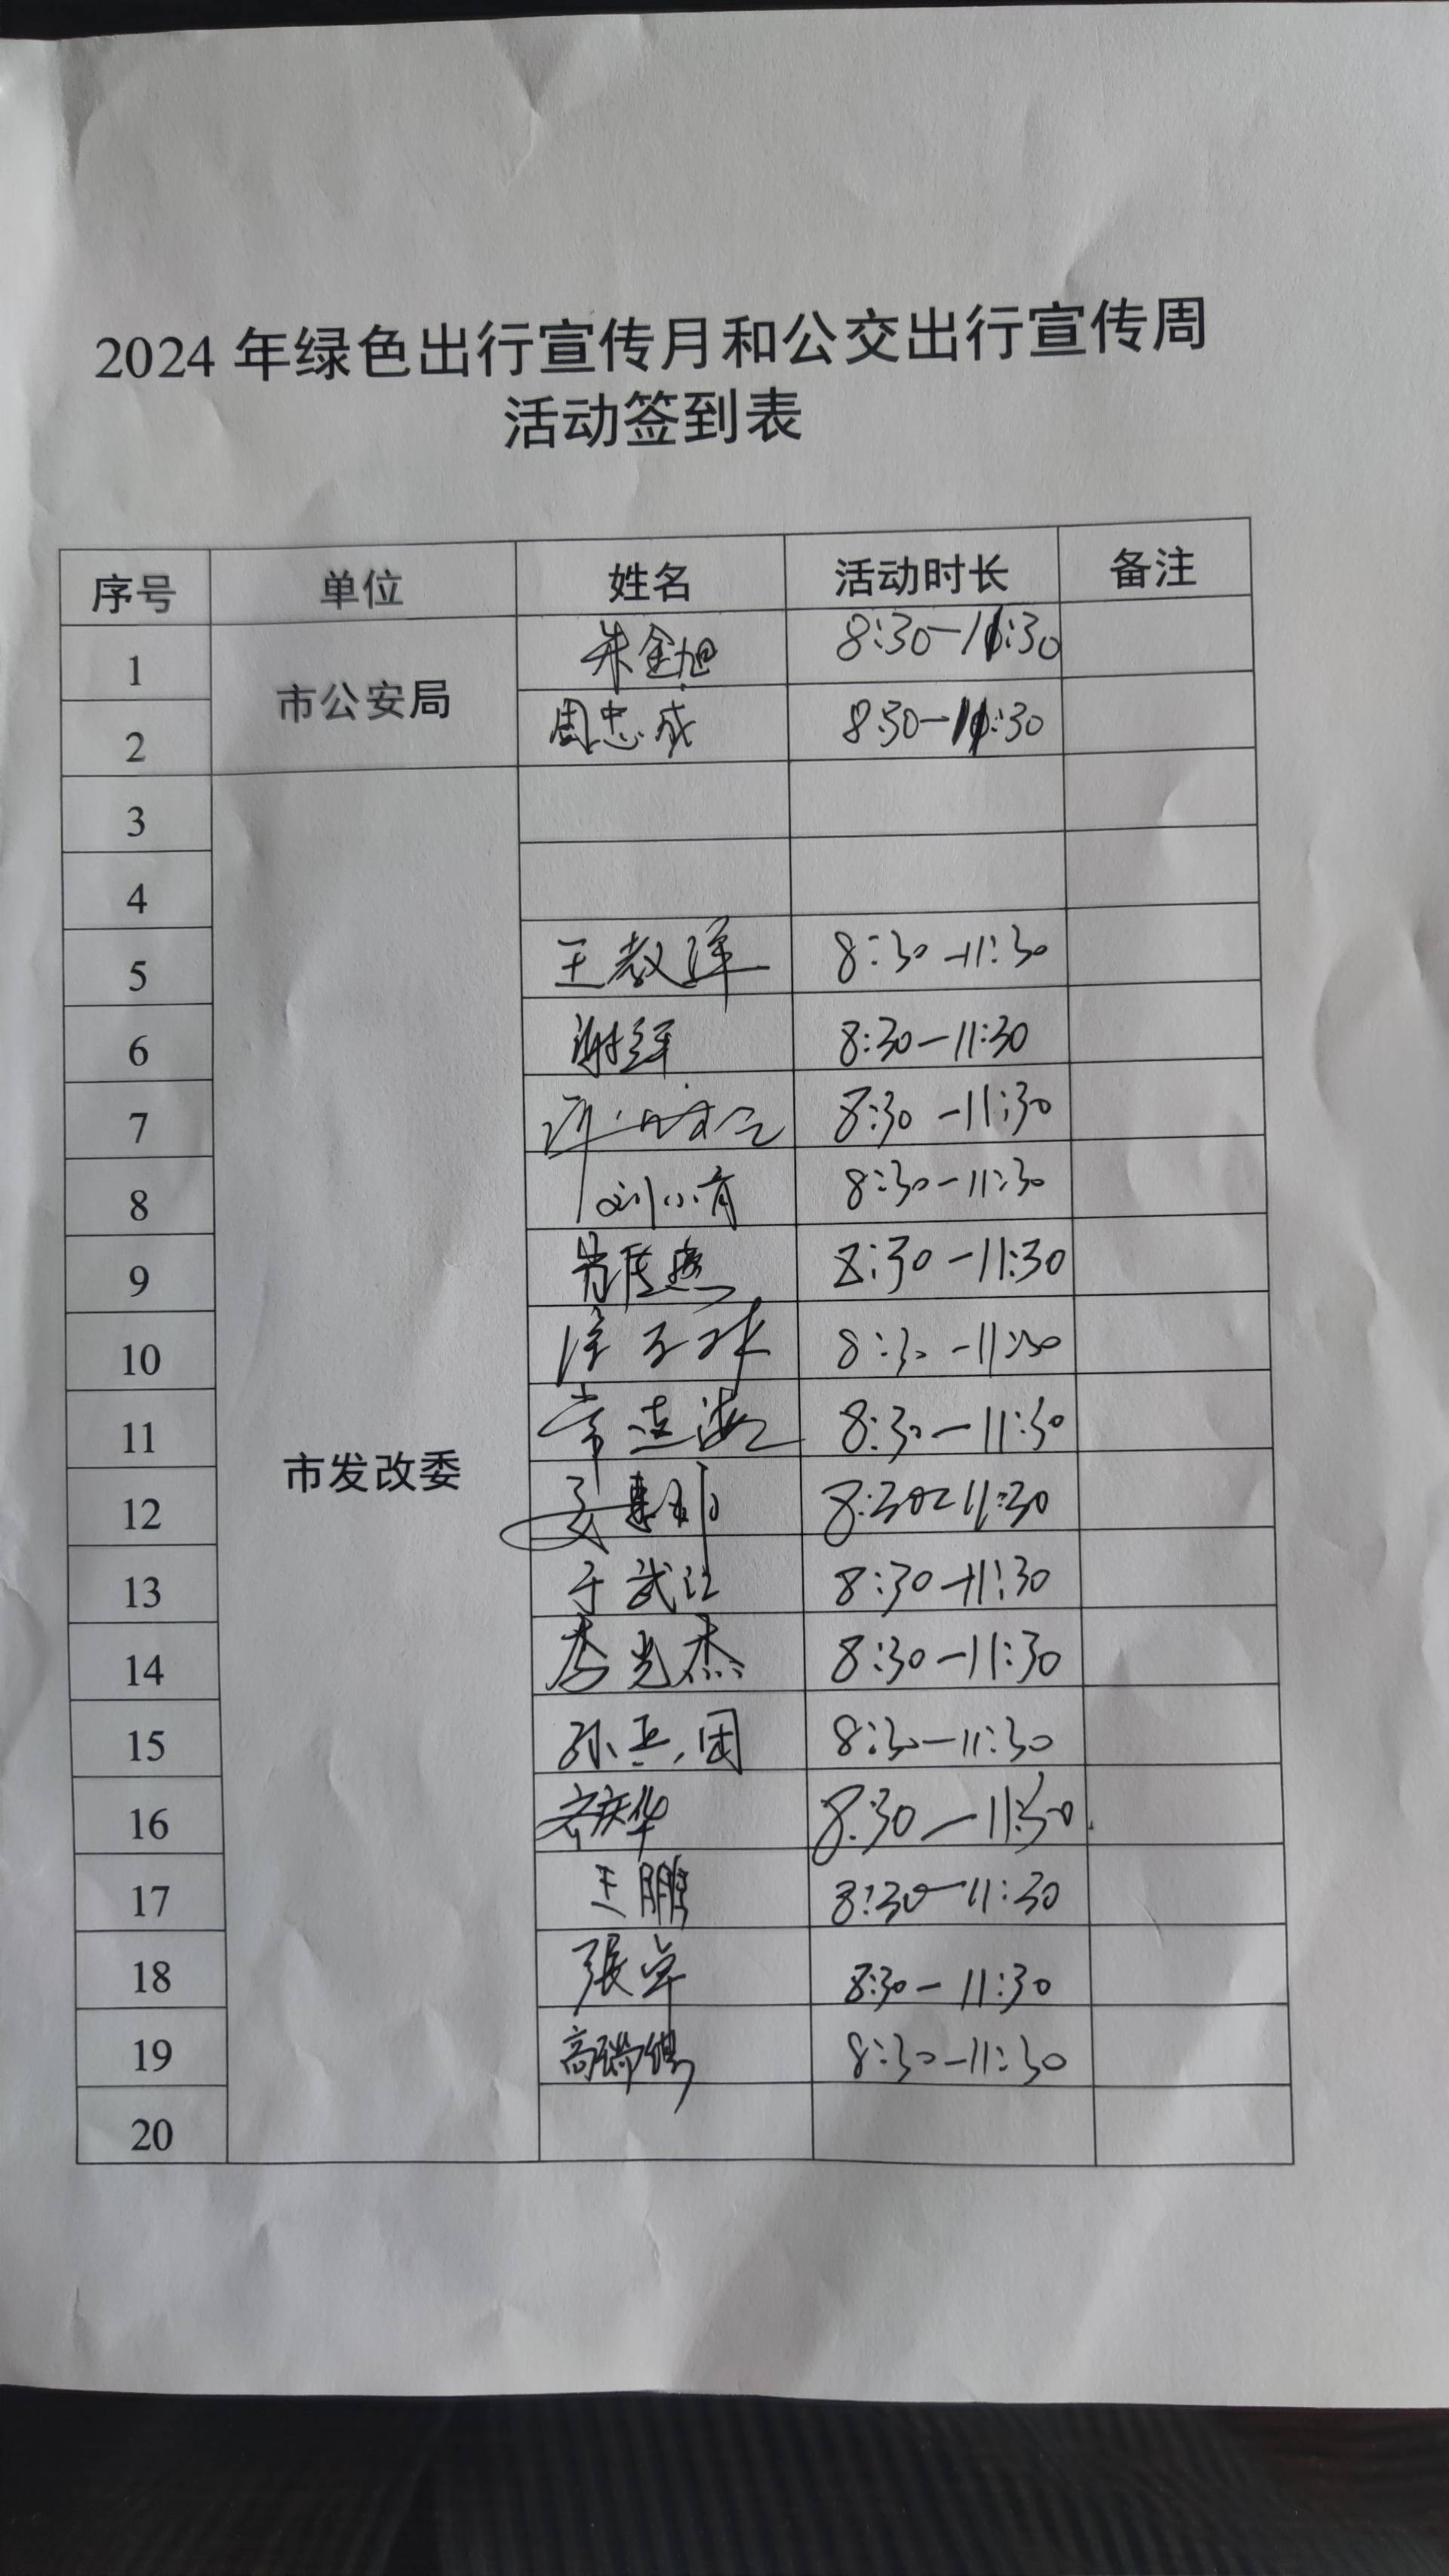 2024 年绿色出行宣传月和公交出行宣传周
活动签到表
序号 单位 姓名 活动时长 备注
1 市公安局 朱金旭 8:30-11:30
2 周忠成 8:30-11:30
3
4
5 王教洋 8:30-11:30
6 8:30-11:30
7 8:30-11:30
8 刘小育 8:30-11:30
9 8:30-11:30
10 8:30-11:30
11 常连海 8:30-11:30
市发改委
12 8:30-11:30
13 于武江 8:30-11:30
14 李光杰 8:30-11:30
15 孙兵团 8:30-11:30
16 8:30-11:30
17 王鹏 8:30-11:30
18 張卓 8:30-11:30
19 8:30-11:30
20